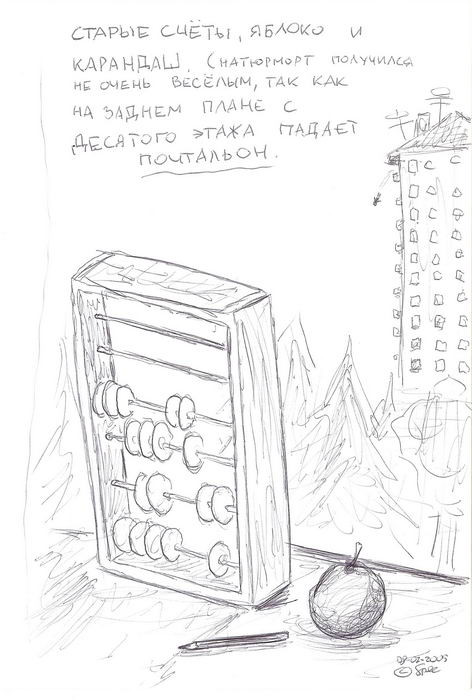 СТАРЫЕ СЧЁТЫ, ЯБЛОКО И
КАРАНДАШ. (НАТЮРМОРТ ПОЛУЧИЛСЯ
НЕ ОЧЕНЬ ВЕСЁЛЫМ, ТАК КАК
НА ЗАДНЕМ ПЛАНЕ С
ДЕСЯТОГО ЭТАЖА ПАДАЕТ
ПОЧТАЛЬОН.
©